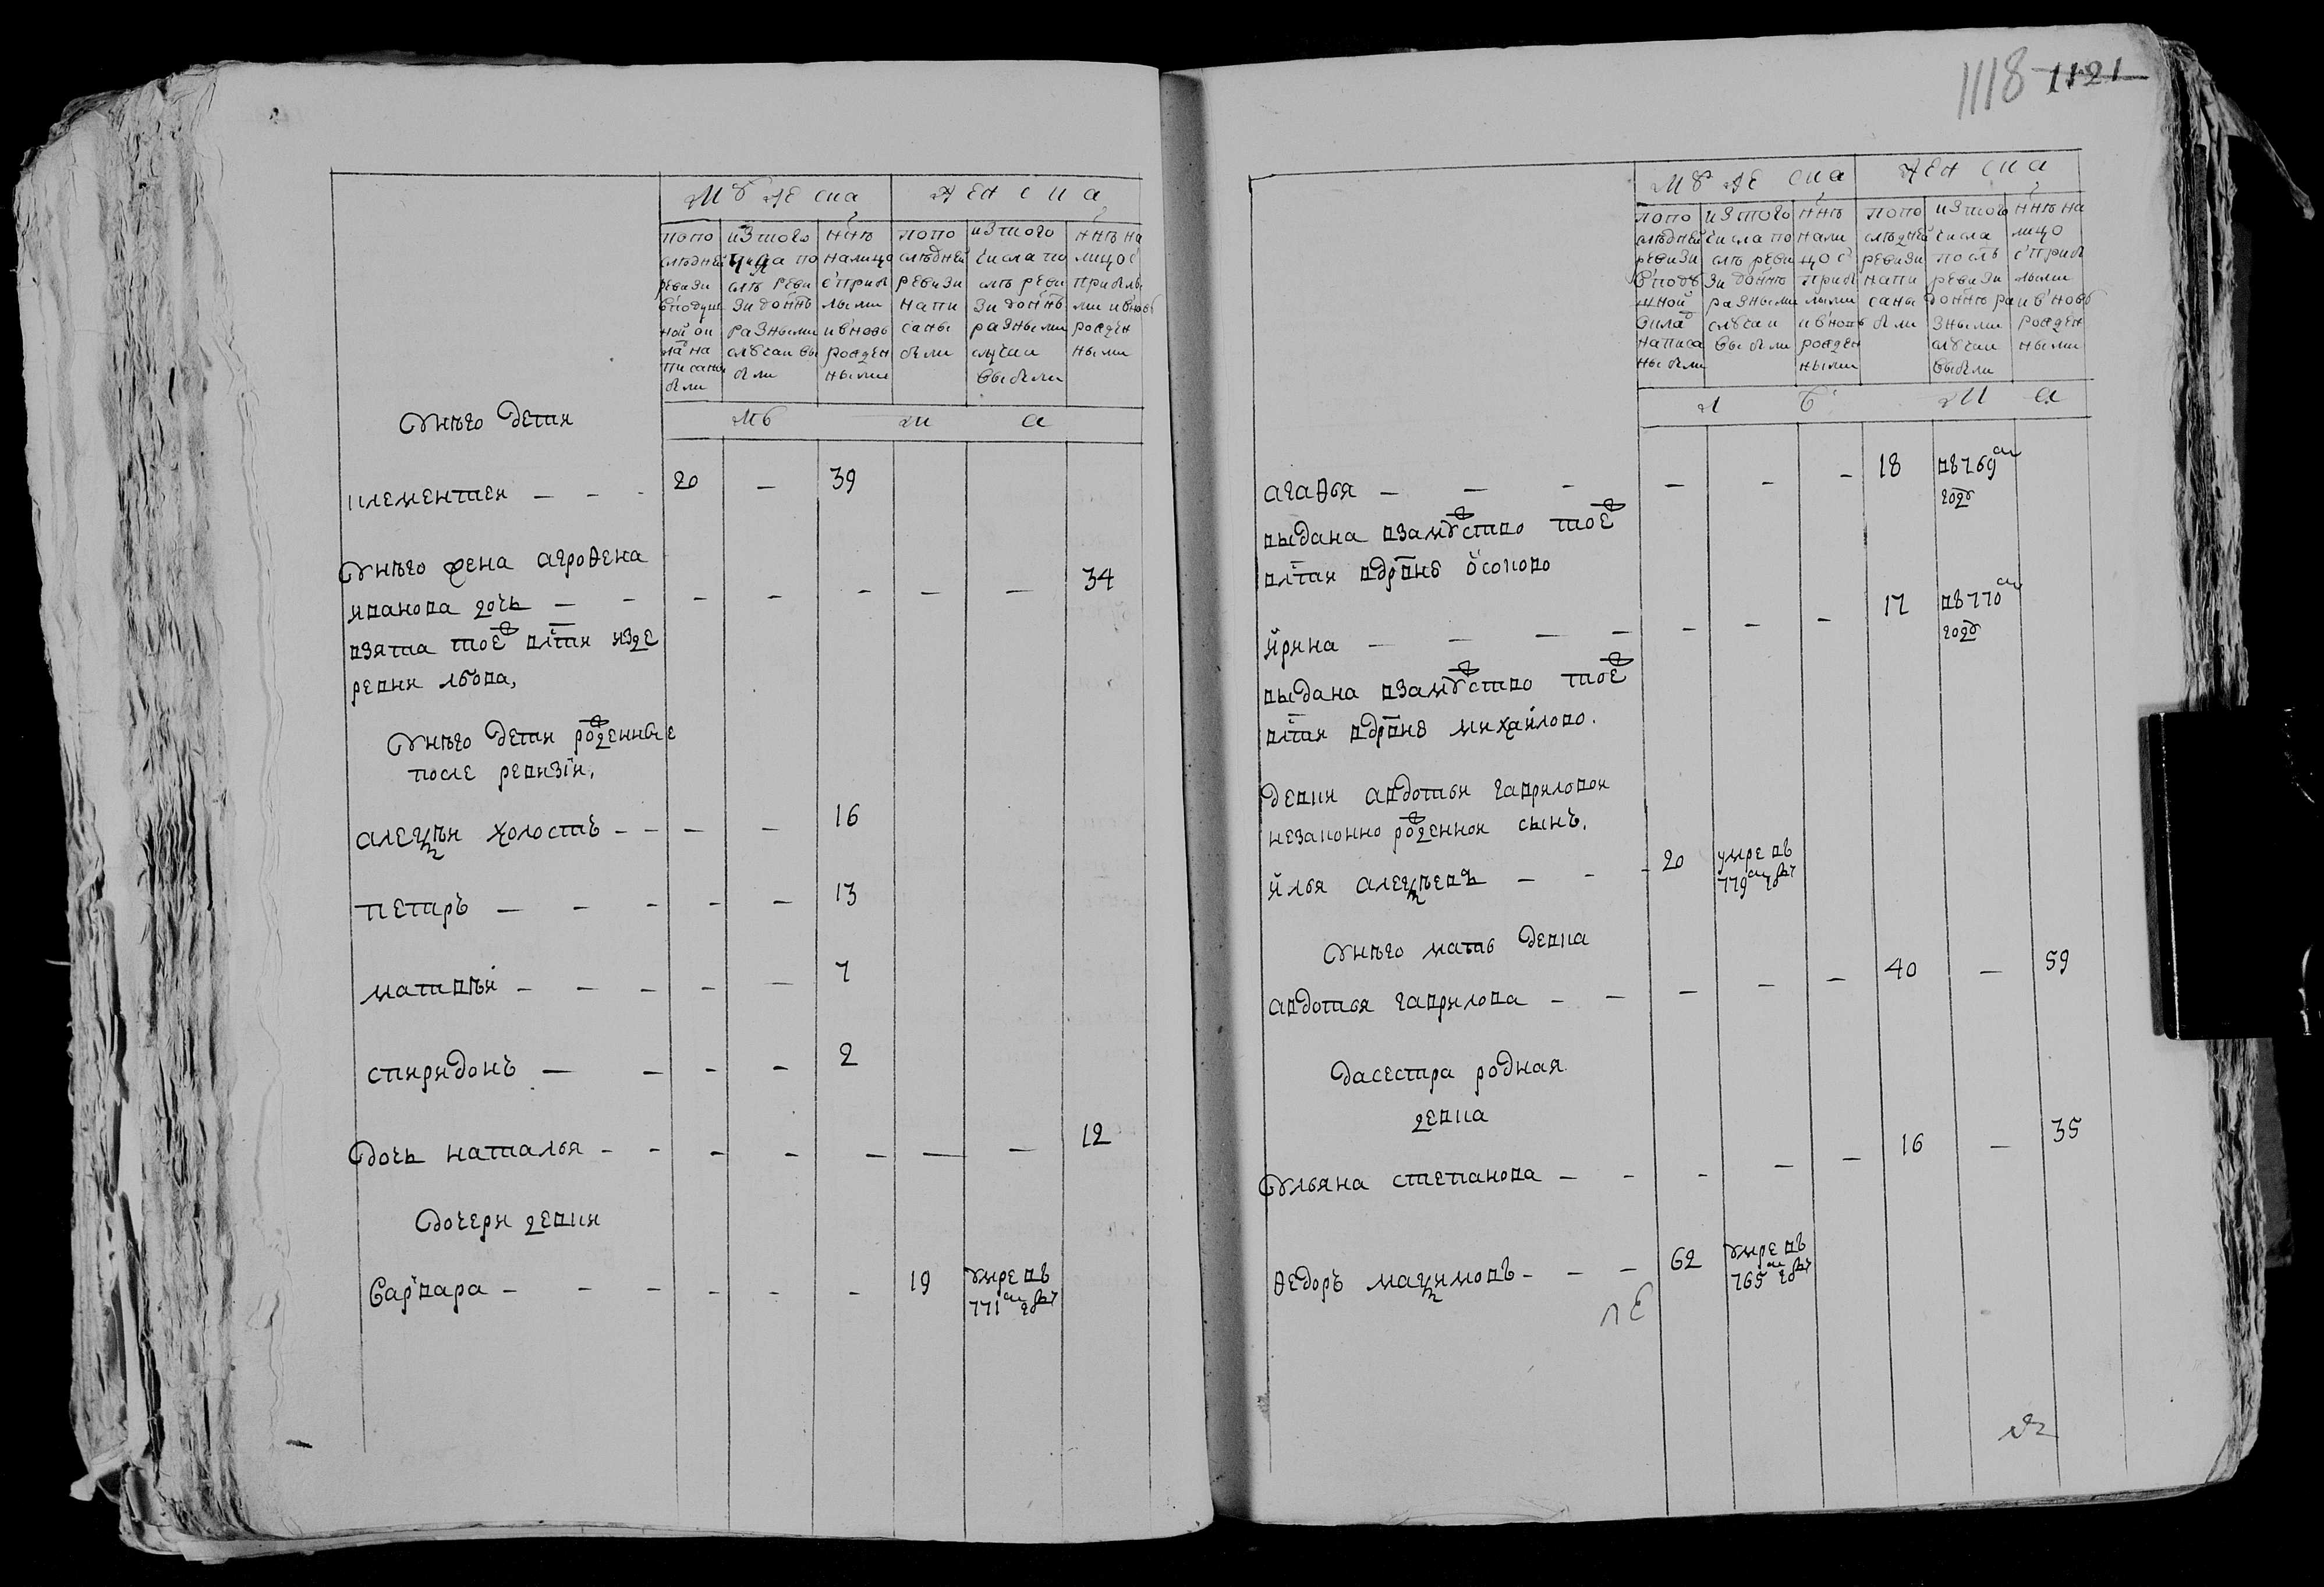 1118 1121
мужеска
женска
попо слѣдней ревизи вподуш ной ок ла на писаны были
изтого числа по слѣ реви зи донне разными случаи вы были
ннѣ налицо сприбы лыми ивновь рожден ными
попо слѣдней ревизи напи саны были
изтого числа по слѣ реви зи доннѣ разными случаи выбыли
ннѣ на лицо с прибылы ми ивновь рожден ными
лѣта
унѣго дети
клементеи — — - 20 — 39
унѣго жена агрофена
иванова дочь — - - - - - — 34
взята тоеж втчи издe
ревни львова,
унѣго дети рожденные
после ревизіи,
алеѯѣи холостъ - - - - 16
петръ — - - - - 13
матвѣй - - - - — 7
спиридонъ — - - - 2
дочь наталья - - - - - — — 12
дочери девки
варвара - - - - - - 19 умре въ
771м году
мужеска
женска
попо слѣдней ревизи вподу шной окла написа ны были
изтого числа по слѣ реви зи доннѣ разными случаи выбыли
ннѣ нали цо с прибы лыми ивновь рожден ными
попо слѣдней ревизи напи саны были
изтого числа послѣ ревизи доннѣ ра зными случаи выбыли
ннѣ на лицо сприбы лыми ивновь рожден ными
лѣта
агафья — — - — - - 18 въ769м
году
выдана взамужство тоеж
втчи вдрвню осоково
ирина — — — - - — - 17 въ770м
году
выдана взамужство тоеж
втчи вдрвню михайлово.
девки авдотьи гавриловои
незаконно рожденнои сынъ,
илья алеѯѣевъ — - - 20 умре въ
779м году
унѣго мать девка
авдотья гаврилова - — - - — 40 — 59
дасестра родная
девка
ульяна степанова — - - - — 16 — 35
федоръ маѯимовъ - - — 62 умре въ
765м году